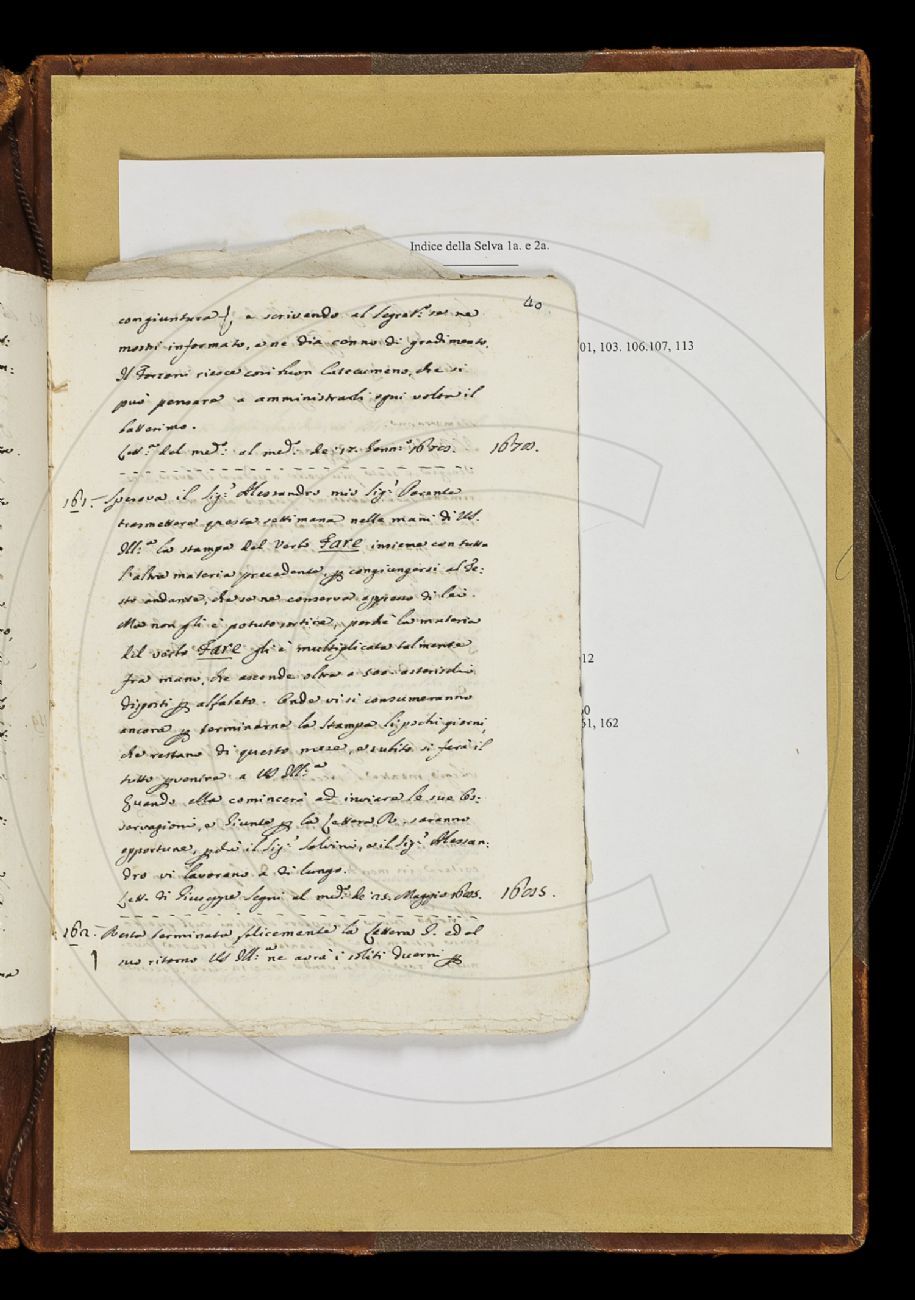 Indice della Selva 1a. e 2a.
40
congiuntura), e scrivendo al Segret.o se ne
mostri informato, e ne dia cenno di gradimento.
Il Forzoni riesce così buon Catecumeno, che si
può pensare a amministrarli ogni volta il
battesimo.
Lett.a del med.o al med.o de' 17. Genn.o
161. Sperava il Sig.r Alessandro mio Sig.r Parente
trasmettere questa settimana nelle mani di VS.
Ill.ma la stampa del Verbo Fare insieme con tutta
l'altra materia precedente, ꝑ congiungersi al Te:
sto andante, che se ne conserva appresso di lei.
Ma non gli è potuto sortire, perchè la materia
del verbo Fare gli è multiplicata talmente
fra mano, che ascende oltre a 500. asterischi
disposti ꝑ alfabeto. Onde vi si consumeranno
ancora ꝑ terminarne la stampa li pochi giorni,
che restano di questo mese, e subito si farà il
tutto ꝑvenire a VS Ill.ma
Quando ella comincerà ad inviare le sue Os:
servazioni, e Giunte ꝑ la Lettera R. saranno
opportune, ꝑchè il Sig.r Salvini, e il Sig.r Alessan:
dro vi lavorano di lungo.
Lett. di Giuseppe Segni al med.o de' 25. Maggio
162. Resta terminata felicemente la Lettera I. ed al
suo ritorno VS Ill.ma ne avrà i soliti duerni ꝑ
01, 103. 106.107, 113
12
60
51, 162